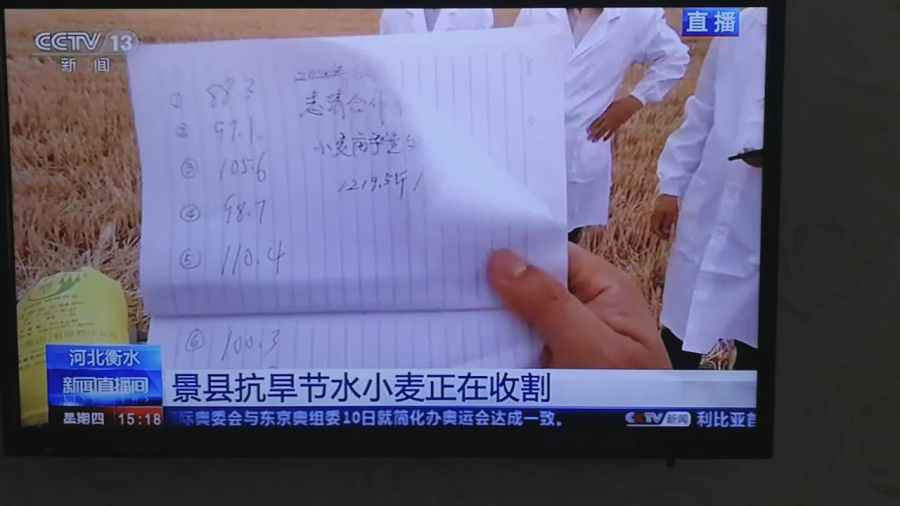 CCTV 13
新闻
直播
① 88.3
② 97.1
③ 105.6
④ 98.7
⑤ 110.4
⑥ 100.3
小麦亩产
1219.5斤/
河北衡水
新闻直播间
景县抗旱节水小麦正在收割
星期四 15:18
际奥委会与东京奥组委10日就简化办奥运会达成一致。
CCTV新闻 利比亚首